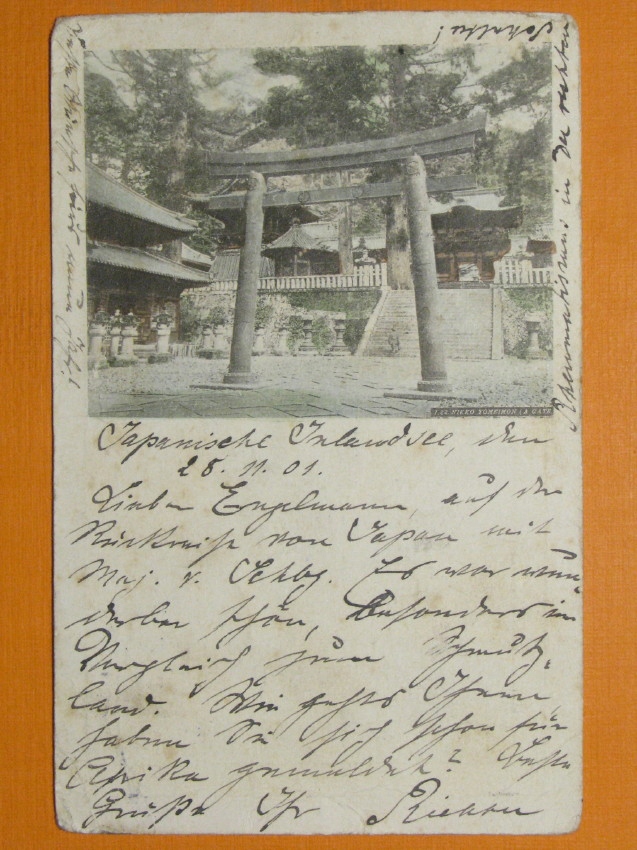 Japanische Inlandsee, den
28. 11. 01.
Lieber Engelmann, auf der
Rückreise von Japan mit
Maj. v. Schbg. Es war wun-
derbar schön, besonders im
Vergleich zum Schmutz-
land. Wie gehts Ihnen
haben Sie sich schon für
Afrika gemeldet? Beste
Grüße Ihr
Rheumatismus in der rechten
NIKKO YOMEIMON (A GATE